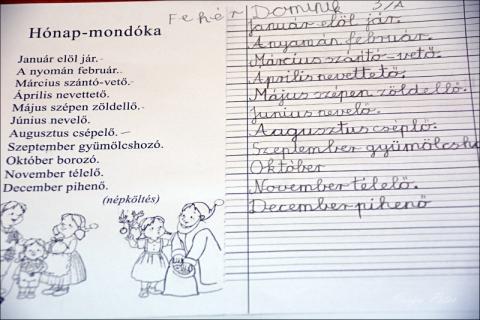 Hónap-mondóka
Január elöl jár.
A nyomán február.
Március szántó-vető.
Április nevettető.
Május szépen zöldellő.
Június nevelő.
Augusztus csépelő.
Szeptember gyümölcshozó.
Október borozó.
November télelő.
December pihenő.
(népköltés)
Fehér Dominik 3/A
Január elöl jár.
A nyomán február.
Március szántó-vető.
Április nevettető.
Május szépen zöldellő.
Június nevelő.
Augusztus cséplő.
Szeptember gyümölcsho
Október
November télelő.
December pihenő